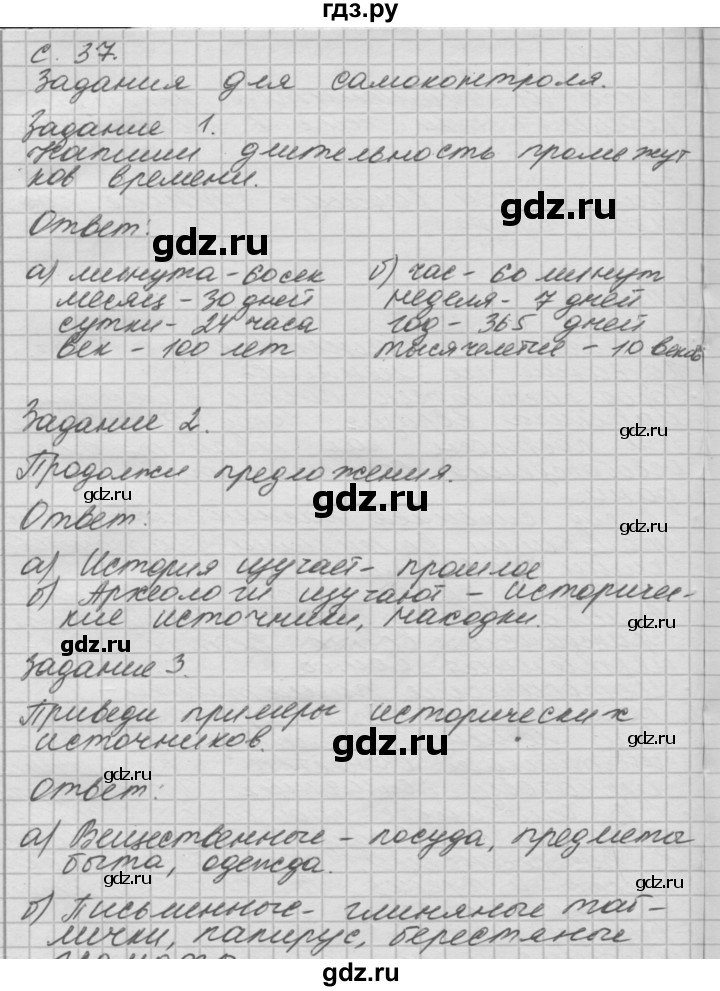 гдз.ру
с. 37.
Задания для самоконтроля.
Задание 1.
Напиши длительность промежут
ков времени.
gdz.ru
Ответ:
gdz.ru
а) минута - 60 сек б) час - 60 минут
месяц - 30 дней неделя - 7 дней
сутки - 24 часа год - 365 дней
век - 100 лет тысячелетие - 10 веков
Задание 2.
gdz.ru
Продолжи предложения.
gdz.ru
gdz.ru
Ответ:
gdz.ru
а) История изучает - прошлое
б) Археологи изучают - историчес-
кие источники, находки.
gdz.ru
gdz.ru
Задание 3.
Приведи примеры исторических
источников.
gdz.ru
gdz.ru
Ответ:
gdz.ru
а) Вещественные - посуда, предметы
быта, одежда.
gdz.ru
gdz.ru
б) Письменные - глиняные таб-
лички, папирус, берестяные
gdz.ru